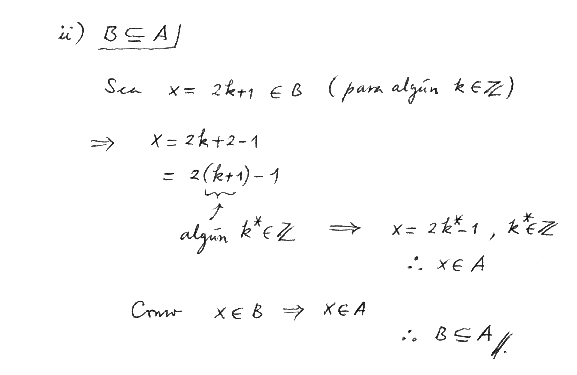 ii) B ⊆ A
Sea x = 2k+1 ∈ B (para algún k ∈ ℤ)
⇒ x = 2k+2-1
= 2(k+1)-1
↑
algún k* ∈ ℤ ⇒ x = 2k*-1, k* ∈ ℤ
∴ x ∈ A
Como x ∈ B ⇒ x ∈ A
∴ B ⊆ A //.